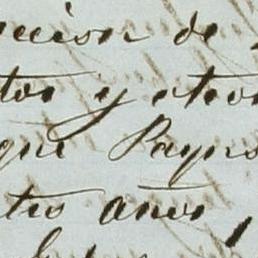 ccion de
tos y otros
que Payos
tro años,